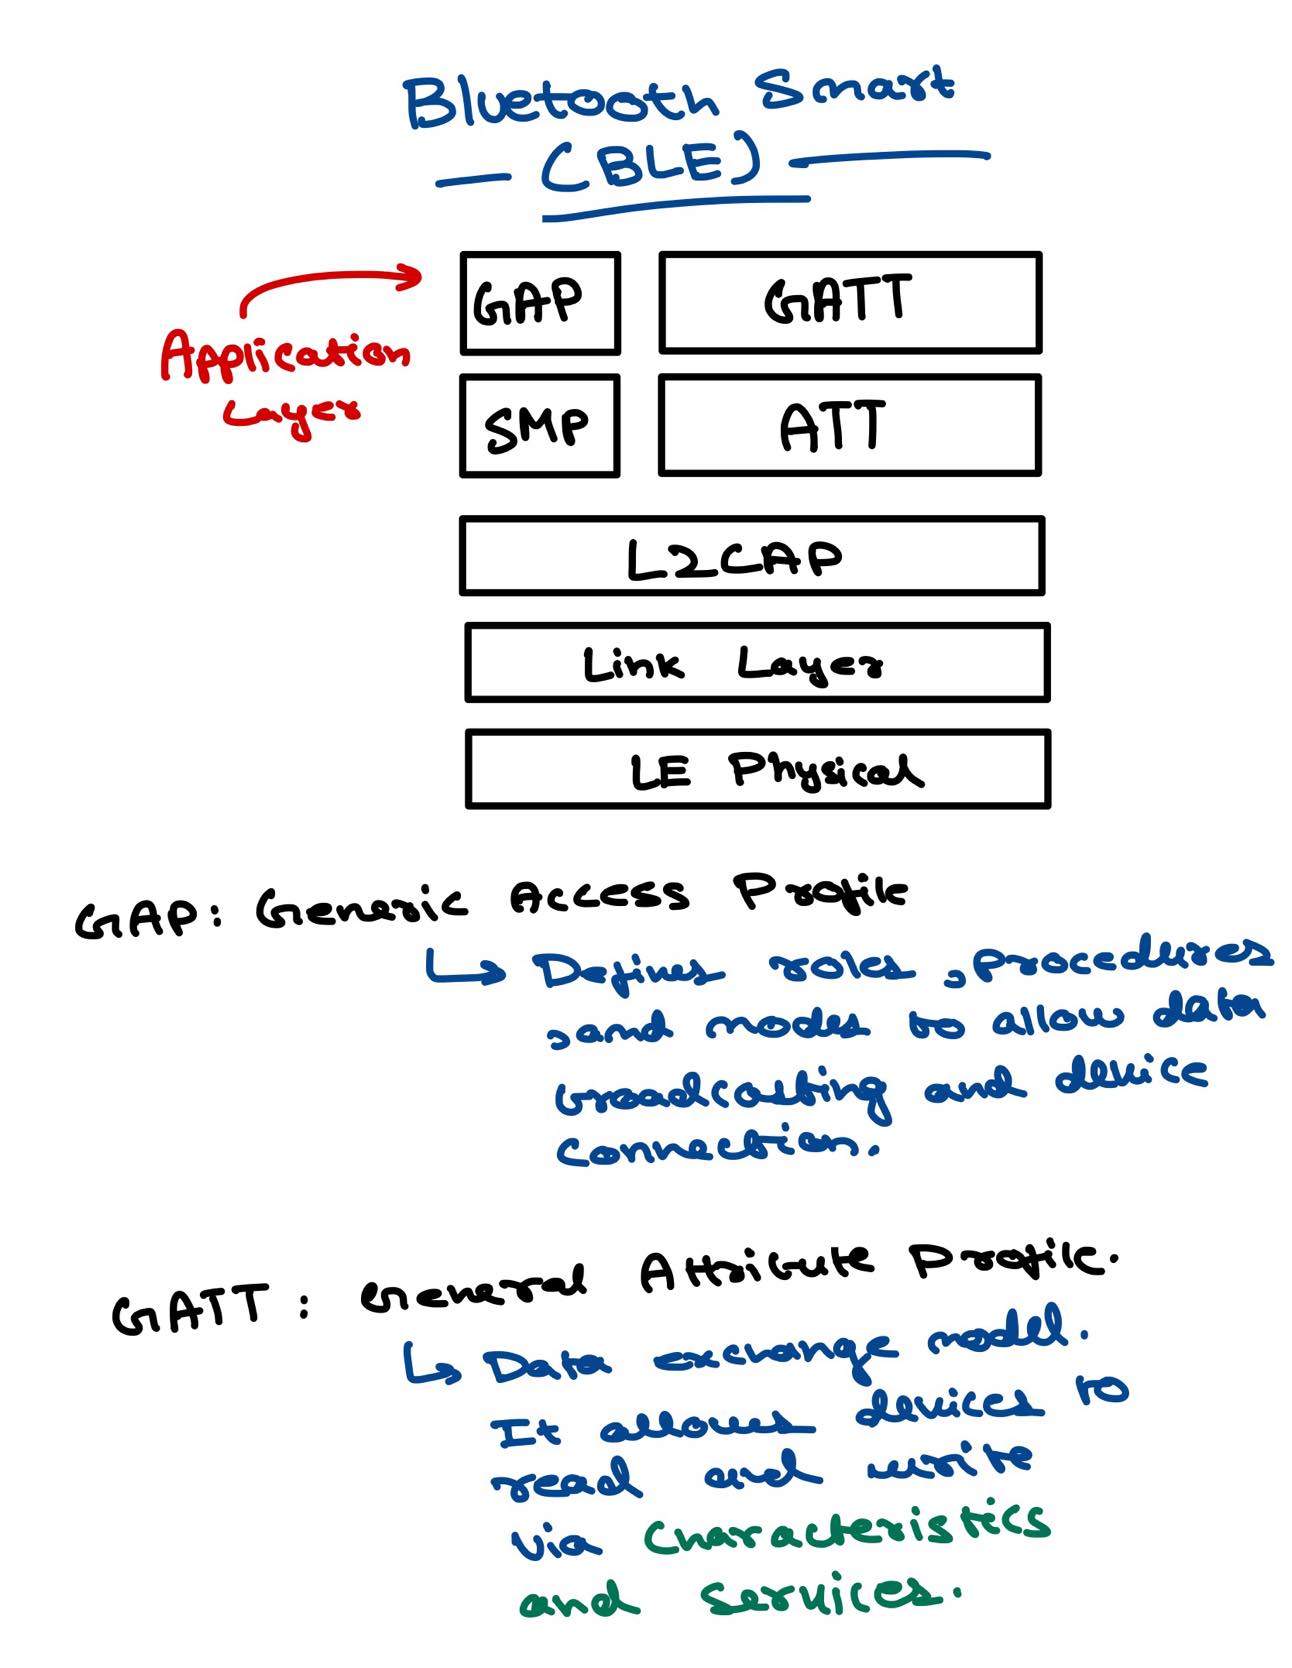 Bluetooth Smart
(BLE)
Application
Layer
GAP
GATT
SMP
ATT
L2CAP
Link Layer
LE Physical
GAP: Generic Access Profile
Defines roles, procedures
, and modes to allow data
broadcasting and device
connection.
GATT: General Attribute Profile.
Data exchange model.
It allows devices to
read and write
via Characteristics
and services.